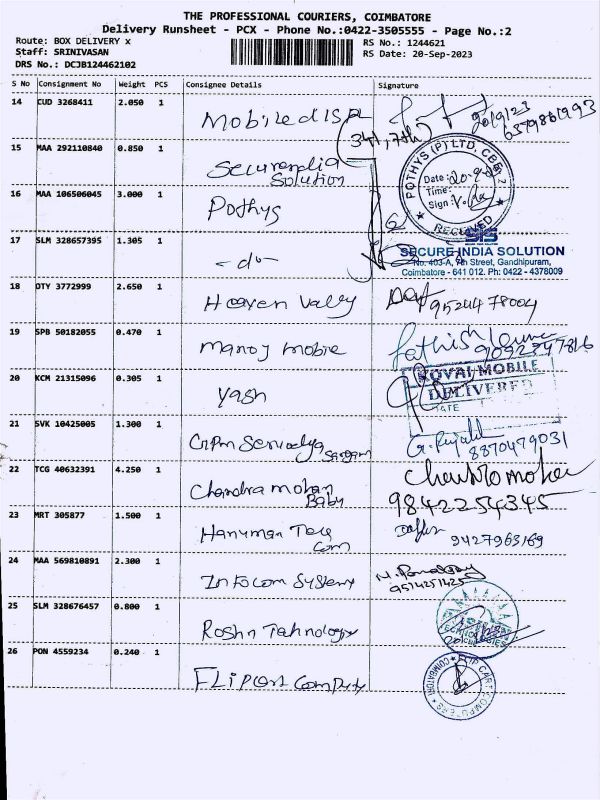 THE PROFESSIONAL COURIERS, COIMBATORE
Delivery Runsheet - PCX - Phone No.:0422-3505555 - Page No.:2
Route: BOX DELIVERY x RS No.: 1244621
Staff: SRINIVASAN RS Date: 20-Sep-2023
DRS No.: DCJB124462102
S No Consignment No Weight PCS Consignee Details Signature
14 CUD 3268411 2.050 1 20/9/23
6379861993
15 MAA 292110840 0.850 1 Securendia
Solution
16 MAA 106506045 3.000 1 Pothys
POTHYS (P) LTD, CBE
Date:
Time:
Sign:
RECEIVED
17 SLM 328657395 1.305 1 -do-
SIS
SECURE INDIA SOLUTION
No. 403-A, 7th Street, Gandhipuram,
Coimbatore - 641 012. Ph: 0422 - 4378009
18 OTY 3772999 2.650 1 Heaven Valley
19 SPB 50182055 0.470 1 Manoj mobile 9092347816
KOVAI MOBILE
DELIVERED
DATE
20 KCM 21315096 0.305 1 Yash
21 SVK 10425005 1.300 1 8870479031
22 TCG 40632391 4.250 1 Chandra mohan
Baby 9842254345
23 MRT 305877 1.500 1 Hanuman Tele
Com 9427963169
24 MAA 569810891 2.300 1 Infocom System
9514251425
25 SLM 328676457 0.800 1 Roshn Tahnology
26 PON 4559234 0.240 1 FLipcart Computer
FLIP CART COMPUTERS
COIMBATORE